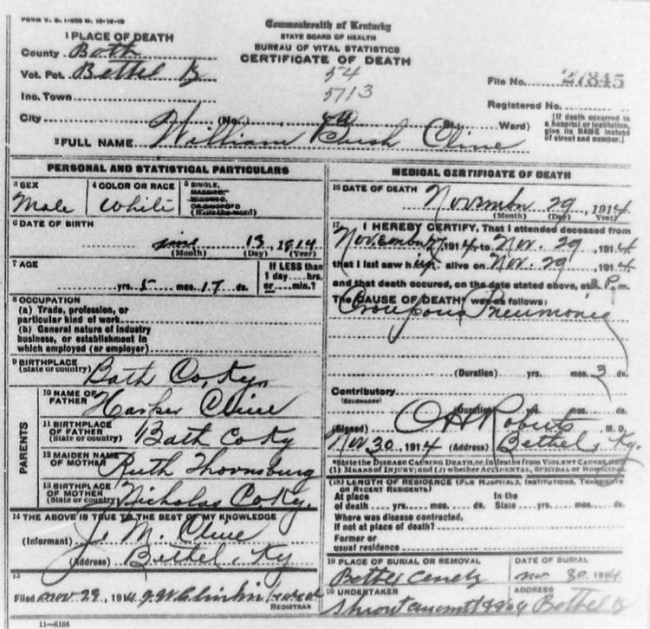 FORM V. S. 1-
Commonwealth of Kentucky
STATE BOARD OF HEALTH
BUREAU OF VITAL STATISTICS
CERTIFICATE OF DEATH
1 PLACE OF DEATH
County Bath
Vot. Pct. Bethel Ky
Inc. Town
City (No. St. Ward)
54
5713
File No. 27845
Registered No.
[If death occurred in a hospital or institution, give its NAME instead of street and number.]
2 FULL NAME William Bush Cline
PERSONAL AND STATISTICAL PARTICULARS
3 SEX
Male
4 COLOR OR RACE
White
5 SINGLE, MARRIED, WIDOWED, OR DIVORCED (Write the word)
6 DATE OF BIRTH
June 13 1914
(Month) (Day) (Year)
7 AGE
yrs. 5 mos. 17 ds.
If LESS than 1 day hrs. or min.?
8 OCCUPATION
(a) Trade, profession, or particular kind of work
(b) General nature of industry business, or establishment in which employed (or employer)
9 BIRTHPLACE (State or country)
Bath Co. Ky.
PARENTS
10 NAME OF FATHER
Harper Cline
11 BIRTHPLACE OF FATHER (State or country)
Bath Co Ky
12 MAIDEN NAME OF MOTHER
Ruth Thornsburg
13 BIRTHPLACE OF MOTHER (State or country)
Nicholas Co Ky.
14 THE ABOVE IS TRUE TO THE BEST OF MY KNOWLEDGE
(Informant) J. M. Cline
(Address) Bethel, Ky
15
Filed Nov. 29, 1914
REGISTRAR
11-6184
MEDICAL CERTIFICATE OF DEATH
16 DATE OF DEATH
November 29, 1914
(Month) (Day) (Year)
17 I HEREBY CERTIFY, That I attended deceased from
November 27 1914 to Nov. 29, 1914
that I last saw him alive on Nov. 29, 1914
and that death occured, on the date stated above, at 2 P. m.
The CAUSE OF DEATH was as follows:
Croupous Pneumonia
(Duration) yrs. mos. 3 ds.
Contributory
(SECONDARY)
(Duration) yrs. mos. ds.
(Signed) Roberts M. D.
Nov 30, 1914 (Address) Bethel, Ky.
*State the DISEASE CAUSING DEATH, or, in deaths from VIOLENT CAUSES, state (1) MEANS OF INJURY; and (2) whether ACCIDENTAL, SUICIDAL or HOMICIDAL.
18 LENGTH OF RESIDENCE (FOR HOSPITALS, INSTITUTIONS, TRANSIENTS OR RECENT RESIDENTS)
At place of death yrs. mos. ds.
In the State yrs. mos. ds.
Where was disease contracted, If not at place of death?
Former or usual residence
19 PLACE OF BURIAL OR REMOVAL
DATE OF BURIAL
Nov. 30, 1914
UNDERTAKER
ADDRESS
Bethel Ky